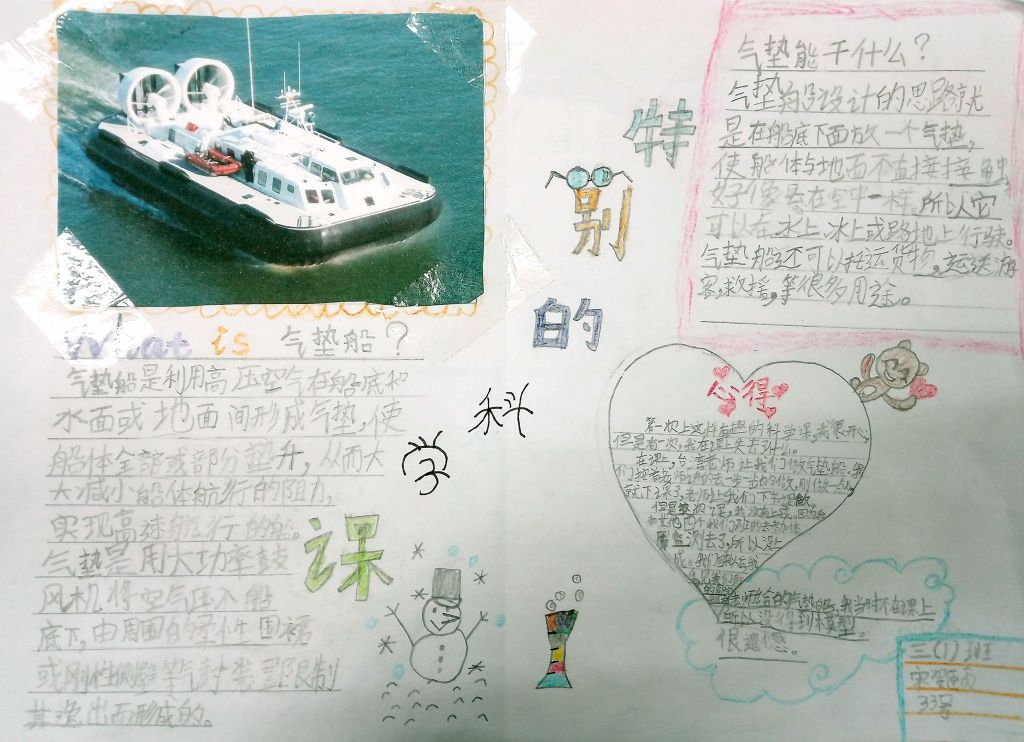 特别的科学课
What is 气垫船？
气垫船是利用高压空气在船底和
水面或地面间形成气垫，使
船体全部或部分垫升，从而大
大减小船体航行的阻力，
实现高速航行的船。
气垫是用大功率鼓
风机将空气压入船
底下，由周围的柔性围裙
或刚性侧壁等气封装置限制
其逸出而形成的。
气垫能干什么？
气垫船设计的思路就
是在船底下面放一个气垫，
使船体与地面不直接接触，
好像是在空中一样，所以它
可以在水上、冰上或路地上行驶。
气垫船还可以括运货物，运送游
客，救援，等很多用途。
心得
第一次上这样有趣的科学课，我很开心，
但是有一次，我在课上失去了什么。
在课上，台老师让我们做气垫船，我
一步一步的做，刚做一点，
就下课了，老师让我们下午
但是
测去了，所以没
气垫船，我当时不在课上
所以没得到模型。
很遗憾。
三（1）班
33号